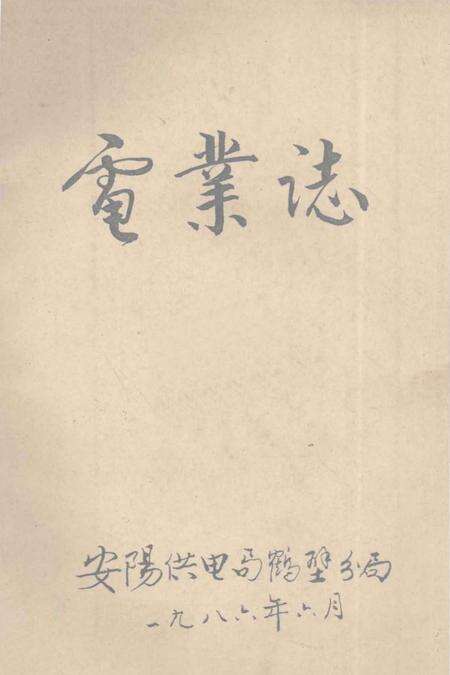 電業誌
安陽供电局鹤壁分局
一九八六年六月